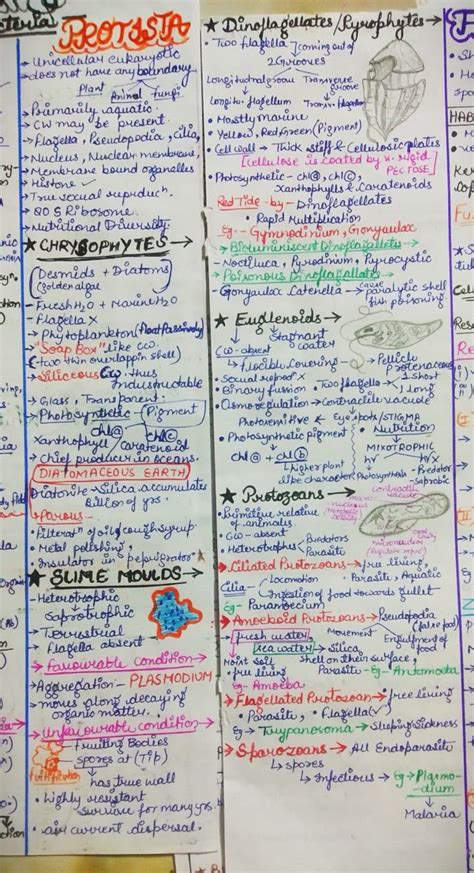 PROTISTA
→ Unicellular eukaryotic
→ does not have any boundary
Plant Animal fungi
→ Primarily aquatic.
→ CW may be present.
→ Flagella, Pseudopodia, cilia,
→ Nucleus, Nuclear membrane,
→ Membrane bound organelles
→ Histone
→ True sexual reproduc.
→ 80 S Ribosome.
→ Nutritional Diversity.
★ CHRYSOPHYTES →
Desmids + Diatoms
(Golden algae
→ Fresh H2O + Marine H2O
→ Flagella X
→ Phytoplankton (float passively)
→ "Soap Box" like CW.
(two thin overlappin shell)
→ Siliceous CW thus
Indestructable
→ Glass, Transparent.
→ Photosynthetic - Pigment
Xanthophyll / chl(a) chl(c) caratenoid
→ Chief producer in oceans.
DIATOMACEOUS EARTH
Diatomite → Silica accumulate
Billion of yrs.
→ Porous -
• Filteratn of oil, cough syrup.
• Metal polishing,
• Insulator in refrigrator
★ SLIME MOULDS →
→ Heterotrophic
Saprotrophic
→ Terrestrial
→ Flagella absent
→ favourable condition →
→ Aggregation - PLASMODIUM
→ moves along decaying
organic matter.
→ Unfavourable condition →
• fruiting Bodies
• spores at (Tip)
→ has true wall
• highly resistant
survive for many yrs.
• air current dispersal.
★ Dinoflagellates / Pyrophytes →
• Two flagella coming out of
2 Grooves
Longitudnal groove Transverse groove
Longitu. flagellum Transv. flagellum
• Mostly marine
• Yellow, Red, Green (Pigment)
• Cell wall → Thick stiff & Cellulosic plates
[Cellulose is coated by v. rigid
PECTOSE]
• Photosynthetic - chl(a), chl(c),
Xanthophylls & Caratenoids
Red Tide - by → Dinoflagellates
• Rapid Multiplication
Eg. - Gymnodinium, Gonyaulax
→ Bioluminiscent Dinoflagellates -
→ Noctiluca, Pyrodinium, Pyrocystic
→ Poisonous Dinoflagellates
→ Gonyaulax Catenella → Cause paralytic shell
fish poisoning.
★ Euglenoids →
→ CW-absent
Stagnant water
→ flexible covering → Pellicle
Protenaceous
• Sexual repro X
• Binary fussion • Two flagella 1 short
1 long
• Osmoregulation → Contractile vacuole
Photosensitive ← Eye spots / STIGMA
• Photosynthetic pigment • Nutrition
MIXOTROPHIC
chl(a) + chl(b)
→ Higher plant
like character
Photosynthesis - Predator
Saprobic
★ Protozoans →
• Primitive relative
of animals
• CW-absent
• Heterotrophs Predators
Parasite
→ Ciliated Protozoans → free living,
Cilia - Locomotion Parasite, Aquatic
Ingestion of food towards gullet
Eg - Paramoecium
→ Amoeboid Protozoans → Pseudopodia (false food)
→ fresh water Movement Engulfment of food
sea water → Silica
Moist soil Shell on their surface,
• free living Parasite - Eg → Antamoeba
Eg → Amoeba
→ Flagellated Protozoan → free living
• Parasite, • Flagella(✓)
Eg → Trypanosoma → Sleeping sickness
→ Sporozoans → All Endoparasite
↳ spores
↳ Infectious → Eg → Plasmo-
dium
↳ Malaria